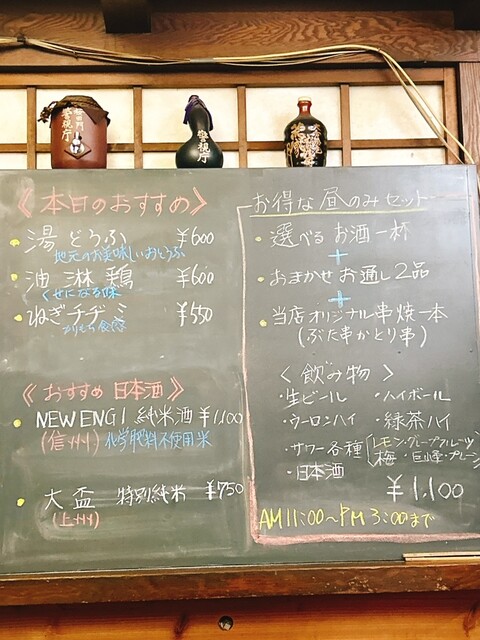 警視庁
警視庁
《本日のおすすめ》
湯どうふ ¥600
地元のお美味しいおとうふ
油淋鶏 ¥600
くせになる味
ねぎチヂミ ¥550
かりもち食感
《おすすめ 日本酒》
NEW ENGI 純米酒 ¥1,100
(信州) 化学肥料不使用米
大盃 特別純米 ¥750
(上州)
お得な昼のみセット
・選べるお酒一杯
+
・おまかせお通し2品
+
・当店オリジナル串焼一本
(ぶた串かとり串)
〈飲み物〉
・生ビール ・ハイボール
・ウーロンハイ ・緑茶ハイ
・サワー各種 (レモン・グレープフルーツ
梅・巨峰・プレーン
・日本酒
¥1,100
AM11:00〜PM3:00まで